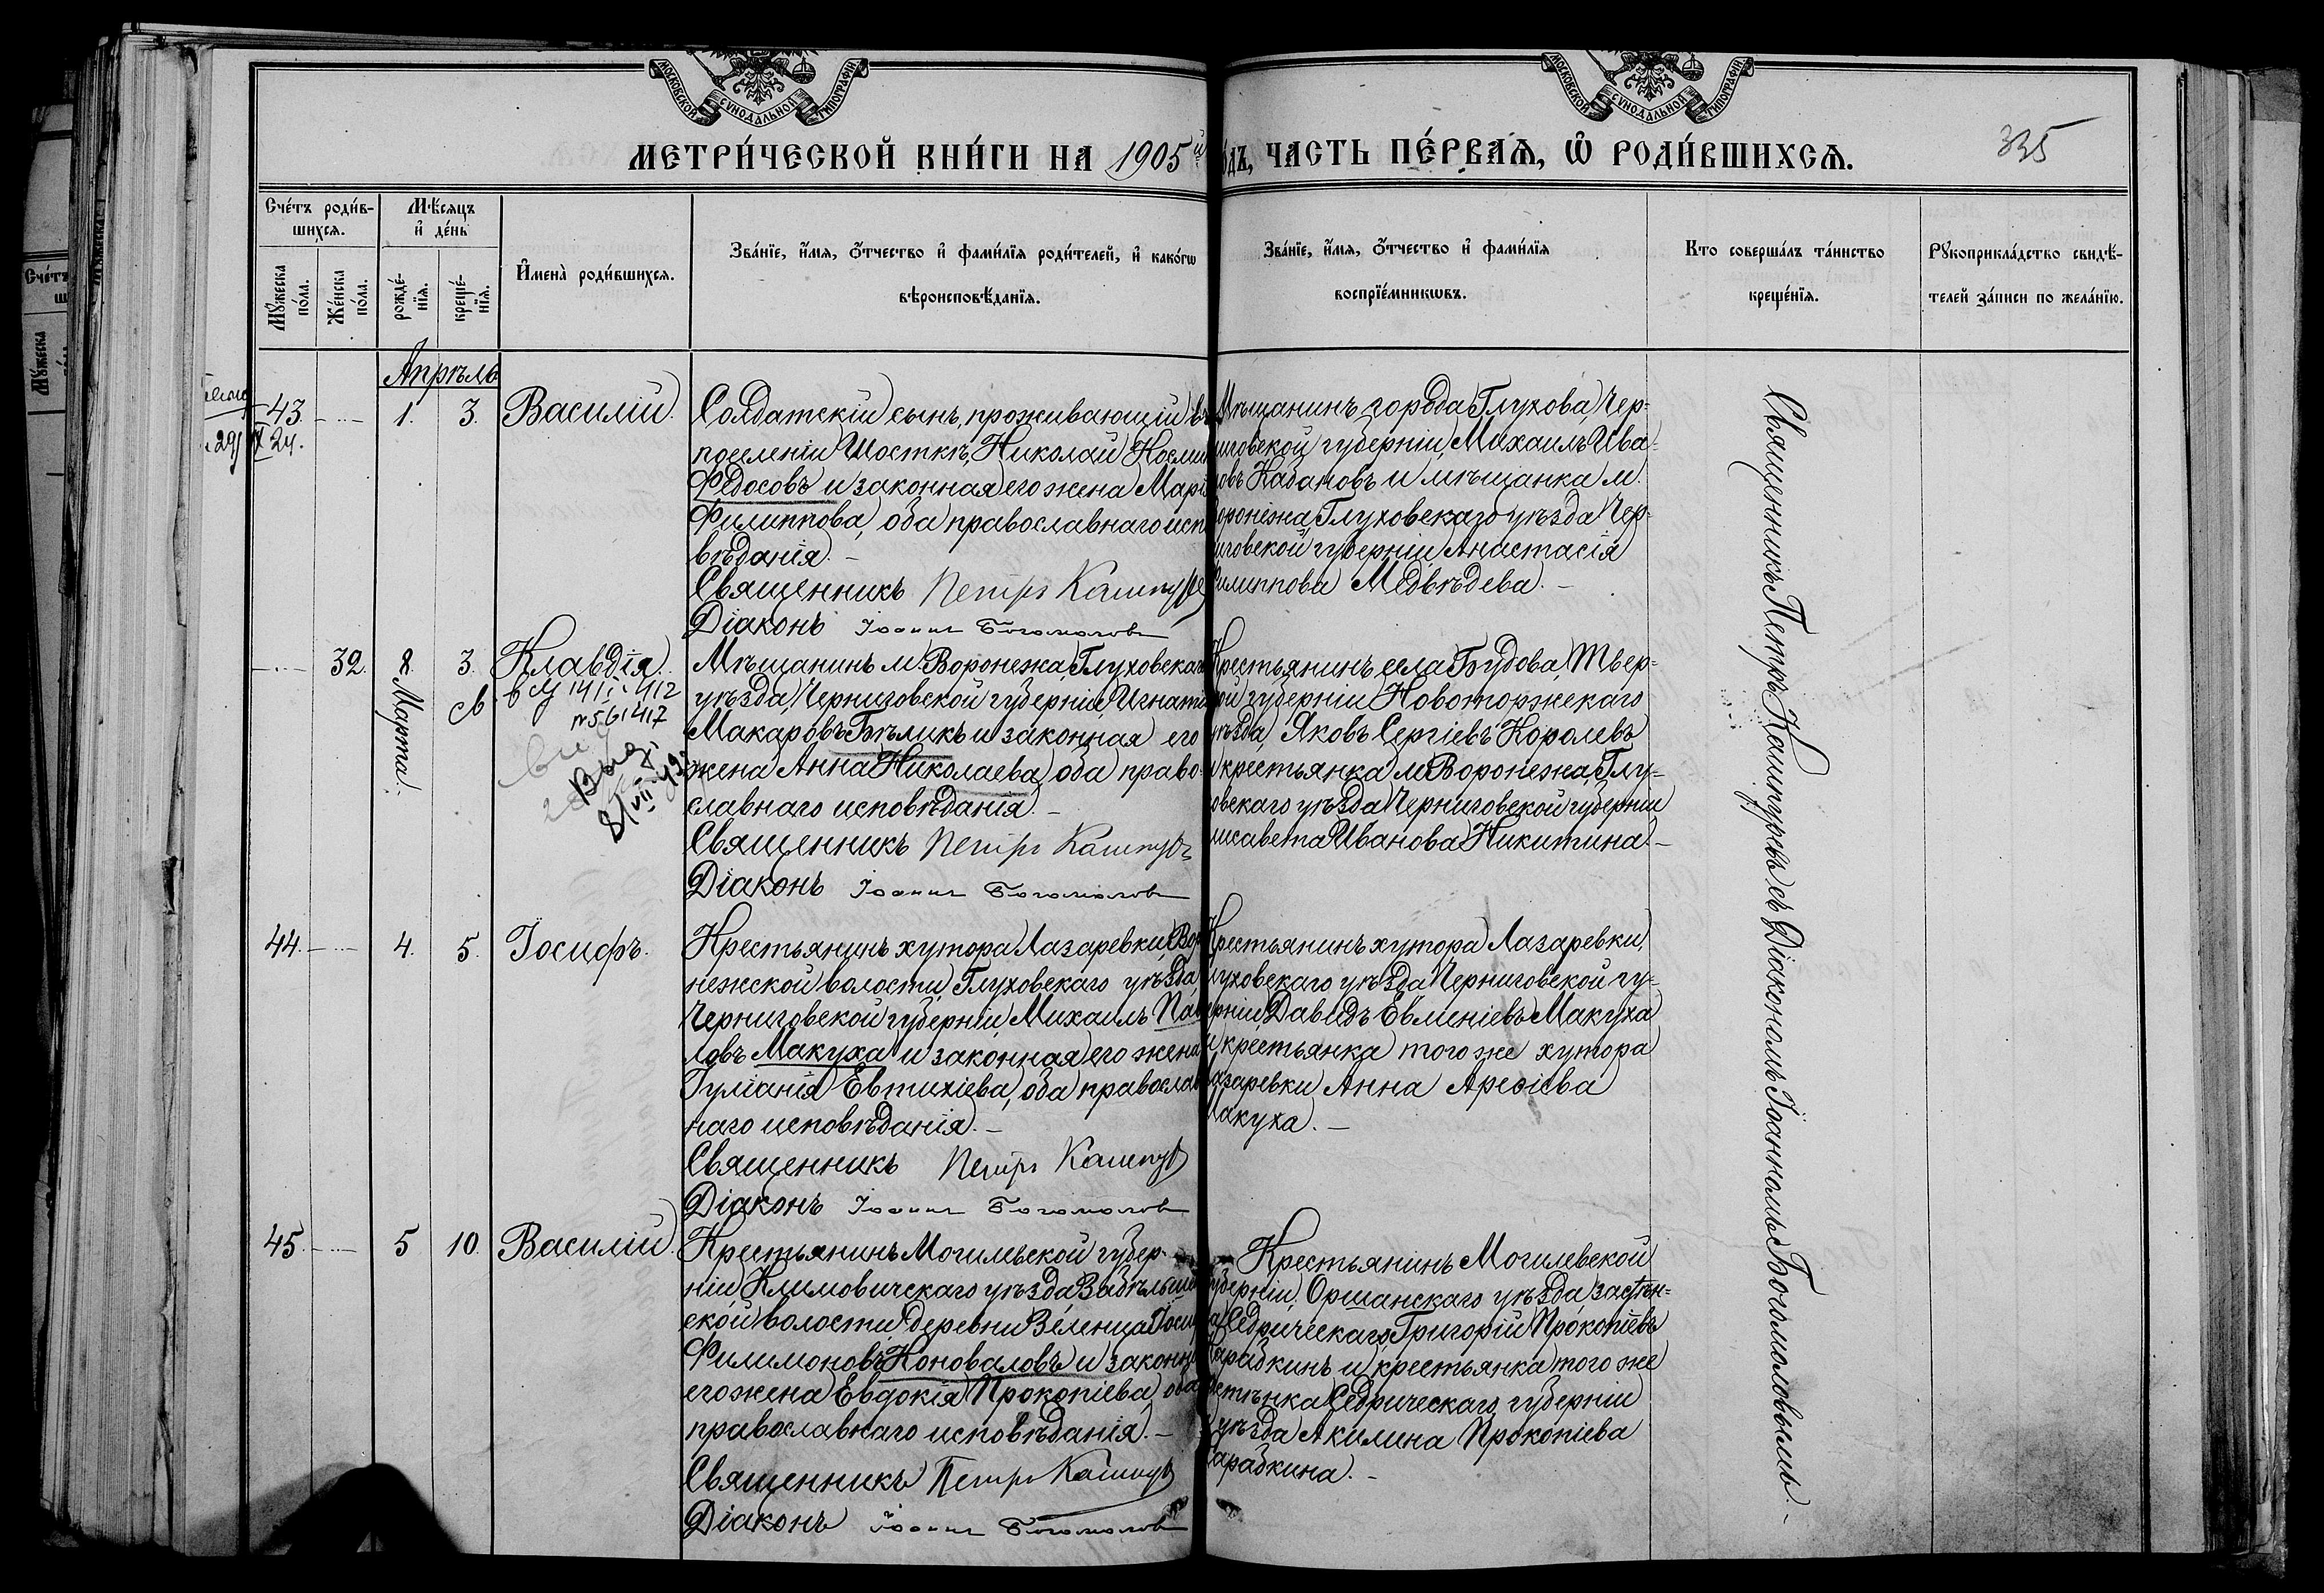 МОСКОВСКОЙ СѴНОДАЛЬНОЙ ТИПОГРАФІИ
МОСКОВСКОЙ СѴНОДАЛЬНОЙ ТИПОГРАФІИ
МЕТРИ́ЧЕСКОЙ КНИ́ГИ НА 1905й
ОДЪ, ЧАСТЬ ПЕ́РВАѦ, Ѡ҆ РОДИ́ВШИХСѦ.
335
Сче́тъ роди́в-
шихсѧ.
Мѣ́сѧцъ
и҆ де́нь
Мꙋ́жеска по́ла.
Же́нска по́ла.
рожде́-
нїѧ.
креще́-
нїѧ.
И҆мена̀ роди́вшихсѧ.
Зва́нїе, и҆́мѧ, ѻ҆́тчество и҆ фами́лїѧ роди́телей, и҆ како́гѡ
вѣроисповѣ́данїѧ.
Зва́нїе, и҆́мѧ, ѻ҆́тчество и҆ фами́лїѧ
воспрїе́мникѡвъ.
Кто соверша́лъ та́инство
креще́нїѧ.
Рꙋкоприкла́дство свидѣ́-
телей за́писи по жела́нїю.
Апрѣль
43. 1. 3. Василій.
Солдатскій сынъ, проживающій въ
поселеніи Шосткѣ, Николай
Ѳедосовъ и законная его жена Марія
Филиппова, оба православнаго исп
вѣданія.
Священникъ Петръ Кашпур
Діаконъ Іоаннъ Богомоловъ
Мѣщанинъ города Глухова, Чер-
ниговской губерніи, Михаилъ Ива-
новъ Кабановъ и мѣщанка м.
Воронежа, Глуховскаго уѣзда Чер-
ниговской губерніи, Анастасія
Филиппова Медвѣдева.
32. 8. Марта. 3. Клавдія.
св
81 VII
Мѣщанинъ м. Воронежа, Глуховскаго
уѣзда, Черниговской губерніи, Игнатій
Макаровъ Бѣликъ и законная его
жена Анна Николаева, оба право-
славнаго исповѣданія.
Священникъ Петръ Кашпур
Діаконъ Іоаннъ Богомоловъ
Крестьянинъ села Будова, Твер-
ской губерніи Новоторжскаго
уѣзда, Яковъ Сергіевъ Королевъ
и крестьянка м. Воронежа, Глу-
ховскаго уѣзда Черниговской губерніи
Елисавета Иванова Никитина.
44. 4. 5. Іосифъ.
Крестьянинъ хутора Лазаревки, Вор
нежской волости, Глуховскаго уѣзда,
Черниговской губерніи, Михаилъ Пав
ловъ Макуха и законная его жена
Іуліанія Евтихіева, оба православ
наго исповѣданія.
Священникъ Петръ Кашпур
Діаконъ Іоаннъ Богомоловъ
Крестьянинъ хутора Лазаревки,
Глуховскаго уѣзда Черниговской гу-
берніи, Давидъ Евменіевъ Макуха
и крестьянка того же хутора
Лазаревки Анна
Макуха.
45. 5 10. Василій.
Крестьянинъ Могилевской губер-
ніи, Климовичскаго уѣзда
ской волости, деревни
Филимоновъ Коноваловъ и законная
его жена Евдокія Прокопіева, оба
православнаго исповѣданія.
Священникъ Петръ Кашпур
Діаконъ Іоаннъ Богомоловъ
Крестьянинъ Могилевской
губерніи, Оршанскаго уѣзда, застѣн-
ка Седрическаго, Григорій Прокопіевъ
и крестьянка того же
застѣнка Седрическаго, губерніи
и уѣзда Акилина Прокопіева
Священникъ Петръ Кашпуревъ съ Діакономъ Іоанномъ Богомоловымъ.